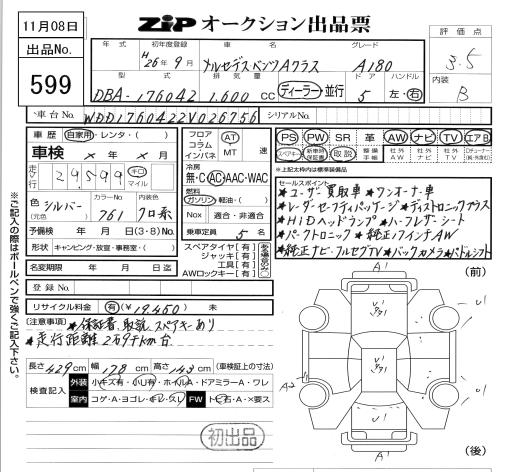 11月08日
ZIP オークション出品票
出品No.
599
評価点
3.5
内装
B
年式 初年度登録 車名 グレード
H26年9月 メルセデスベンツAクラス A180
型式 排気量 ドア ハンドル
DBA-176042 1.600 cc ディーラー・並行 5 左・右
車台No. WDD1760422V026756 シリアルNo.
車歴 自家用・レンタ・( )
車検 × 年 × 月
走行 29,599 キロ マイル
色 シルバー (元色) カラーNo. 761 内装色 クロ系
予備検 年 月 日(3・8)No.
形状 キャンピング・放宣・事務室・( )
名変期限 年 月 日迄
登録No.
フロア コラム インパネ AT MT 速
冷房 無・C・AC・AAC・WAC
燃料 ガソリン・軽油・( )
Nox 適合・非適合
乗車定員 5 名
スペアタイヤ[有]
ジャッキ[有]
工具[有]
AWロックキー[有]
PS PW SR 革 AW ナビ TV エアB
スペアキー 新車時保証書 取説 整備手帳 社外AW 社外ナビ 社外TV
※上記太枠内は標準装備品
セールスポイント
★ユーザー買取車★ワンオーナー車
★レーダーセーフティパッケージ★ディストロニックプラス
★HIDヘッドランプ★ハーフレザーシート
★パークトロニック★純正17インチAW
★純正ナビ・フルセグTV★バックカメラ★パドルシフト
リサイクル料金 有(¥19,450) 未
(注意事項) ★保証書、取説、スペアキーあり
★走行距離2万9千km台
長さ429cm 幅178cm 高さ143cm (車検証上の寸法)
検査記入 外装 小キズ有・小凹有・ホイルA・ドアミラーA・ワレ
室内 コゲ・A・ヨゴレ・キレ・スレ FW トビ石・A・×要ス
初出品
※ご記入の際はボールペンで強くご記入下さい。
(前)
A1
U1
U1 A1
A1
U1 A1
A2
U1
A1
(後)